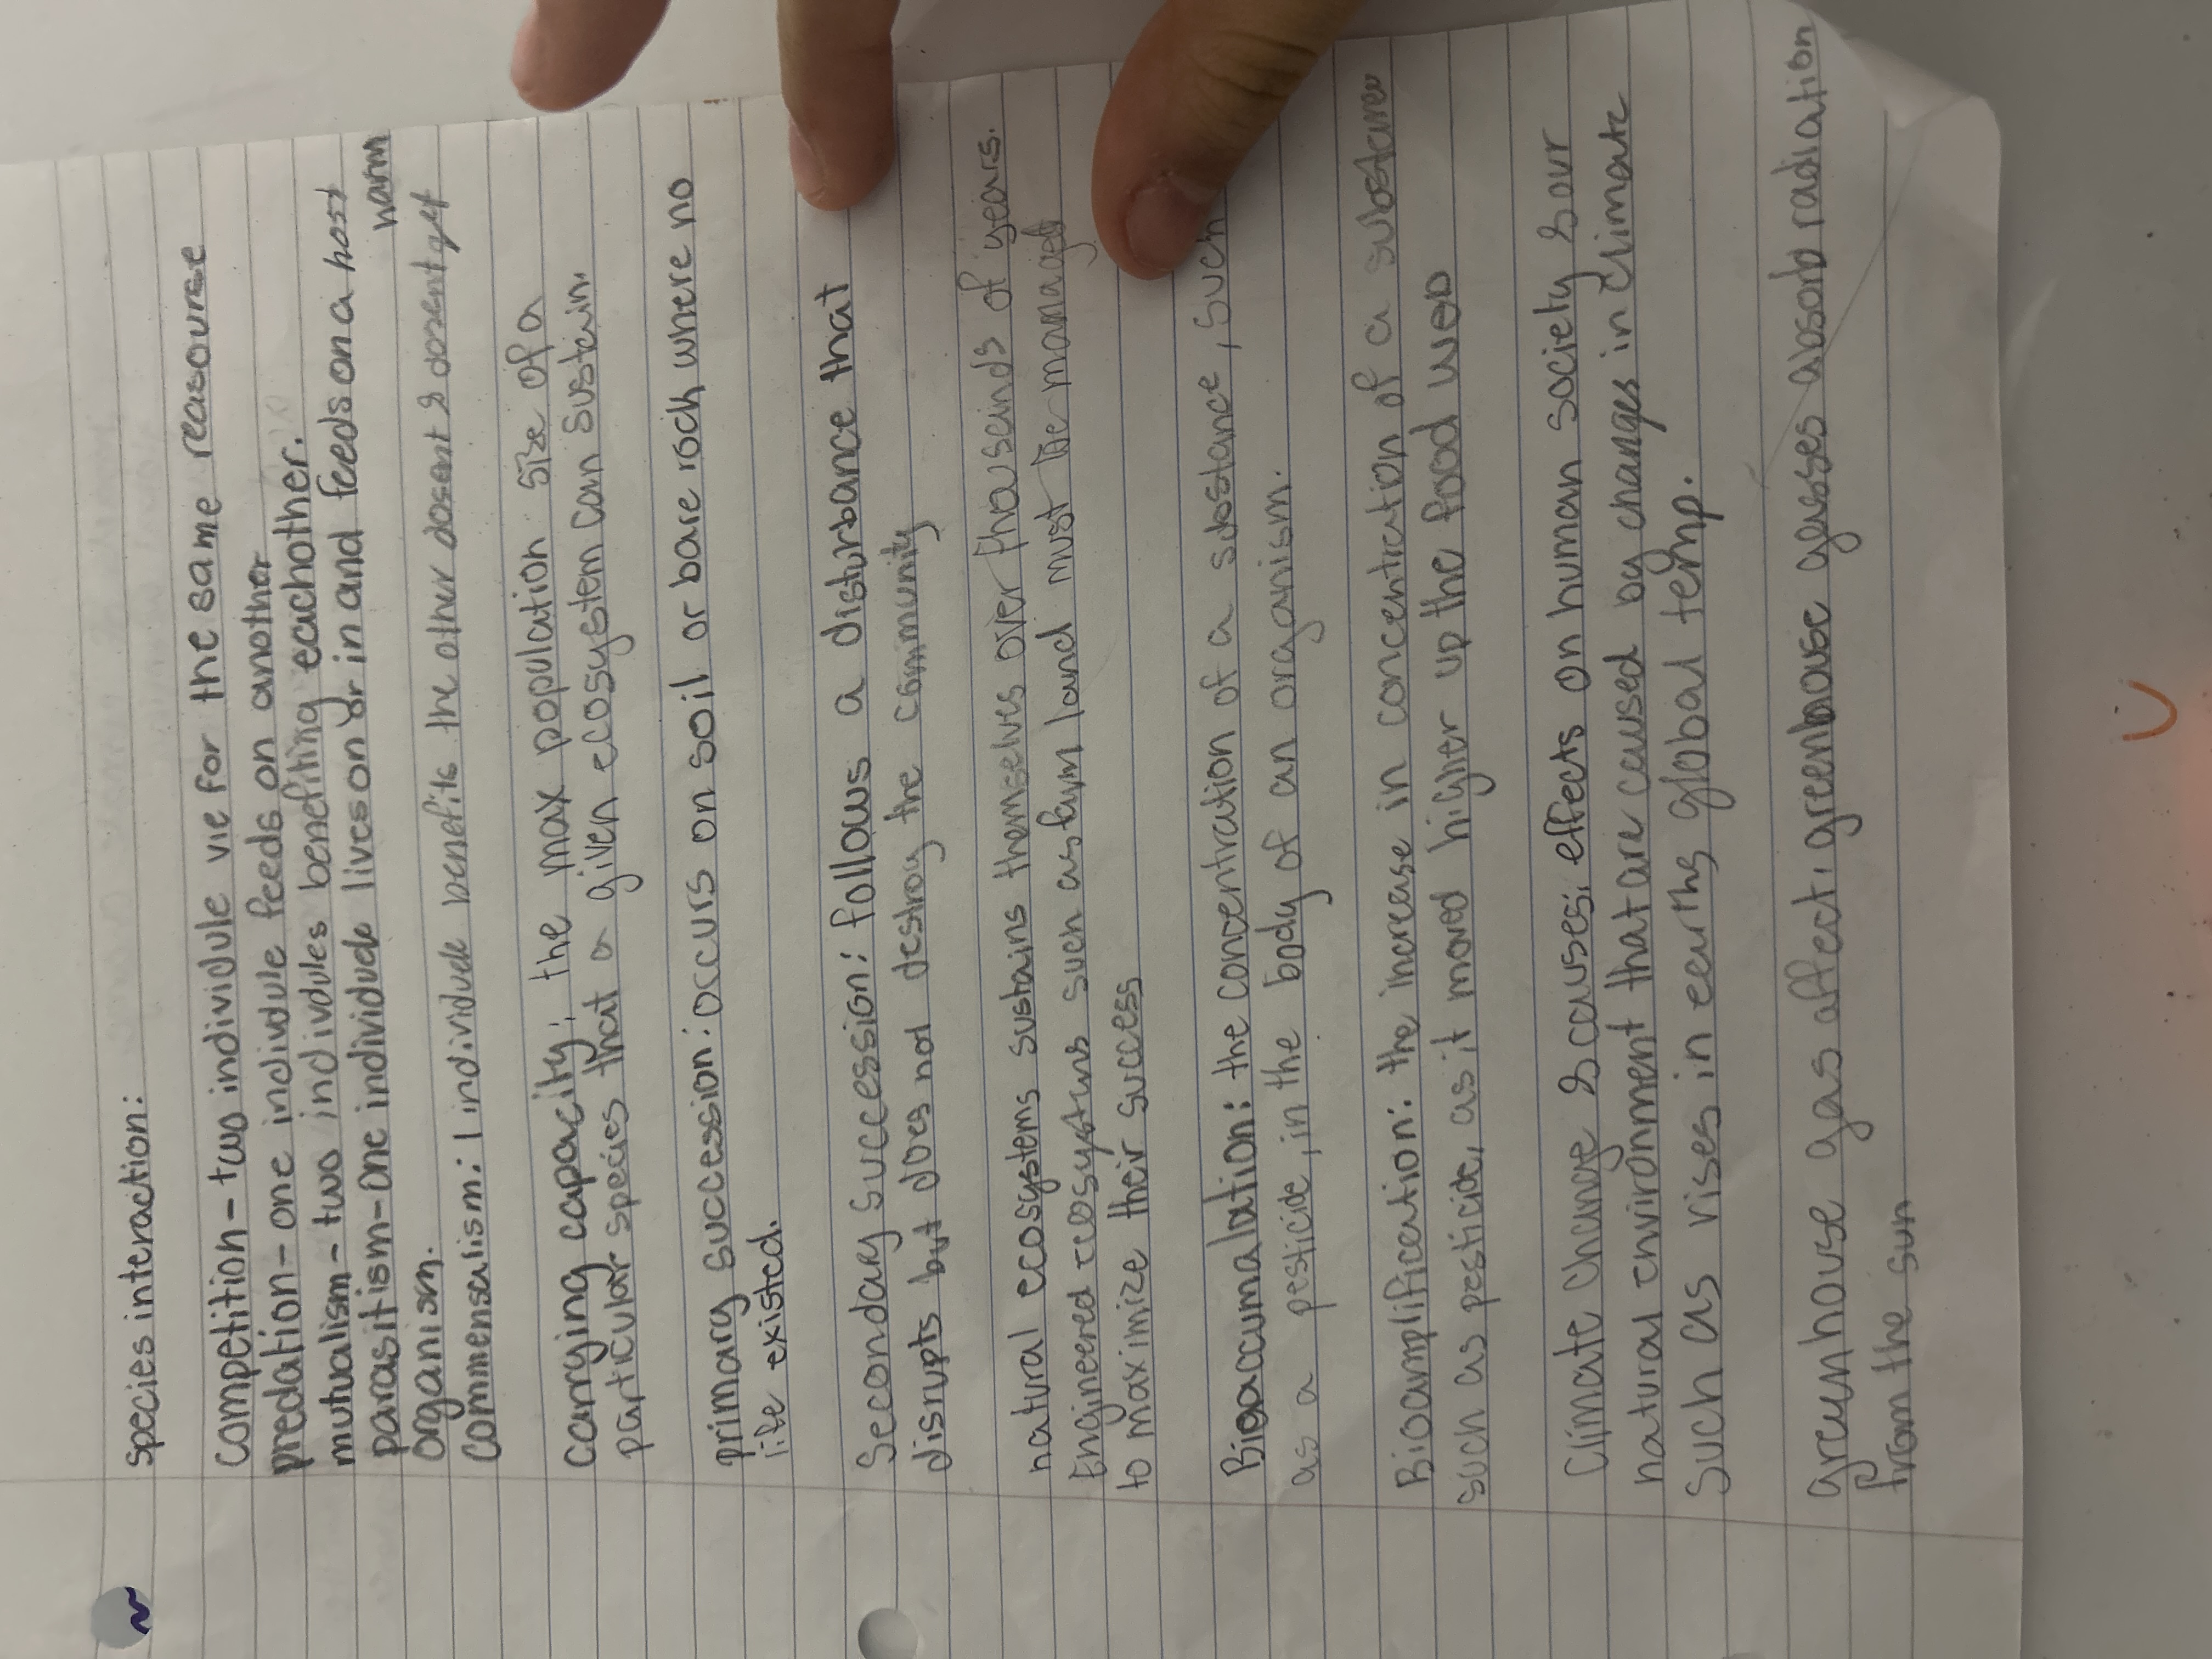 species interaction:
competition - two individule vie for the same reasourse
predation - one individule feeds on another
mutualism - two individules benefiting eachother.
parasitism - one individule lives on or in and feeds on a host
organism.
harm
commensalism: 1 individule benefits the other dosent & dosent get
carrying capacity: the max population size of a
particular species that a given ecosystem can sustain.
primary succession: occurs on soil or bare rock where no
life existed.
Secondary succession: follows a disturbance that
disrupts but does not destroy the community
natural ecosystems sustains themselves over thouseinds of years.
Engineered ecosystems such as farm land must be managed
to maximize their success
Bioaccumalation: the concentration of a substance, such
as a pesticide, in the body of an organism.
Bioamplification: the increase in concentration of a substance
such as pesticide, as it moved higher up the food web
Climate change & causes: effects on human society & our
natural environment that are caused by changes in climate
such as rises in earths global temp.
Greenhouse gas affect: greenhouse gasses absorb radiation
from the sun